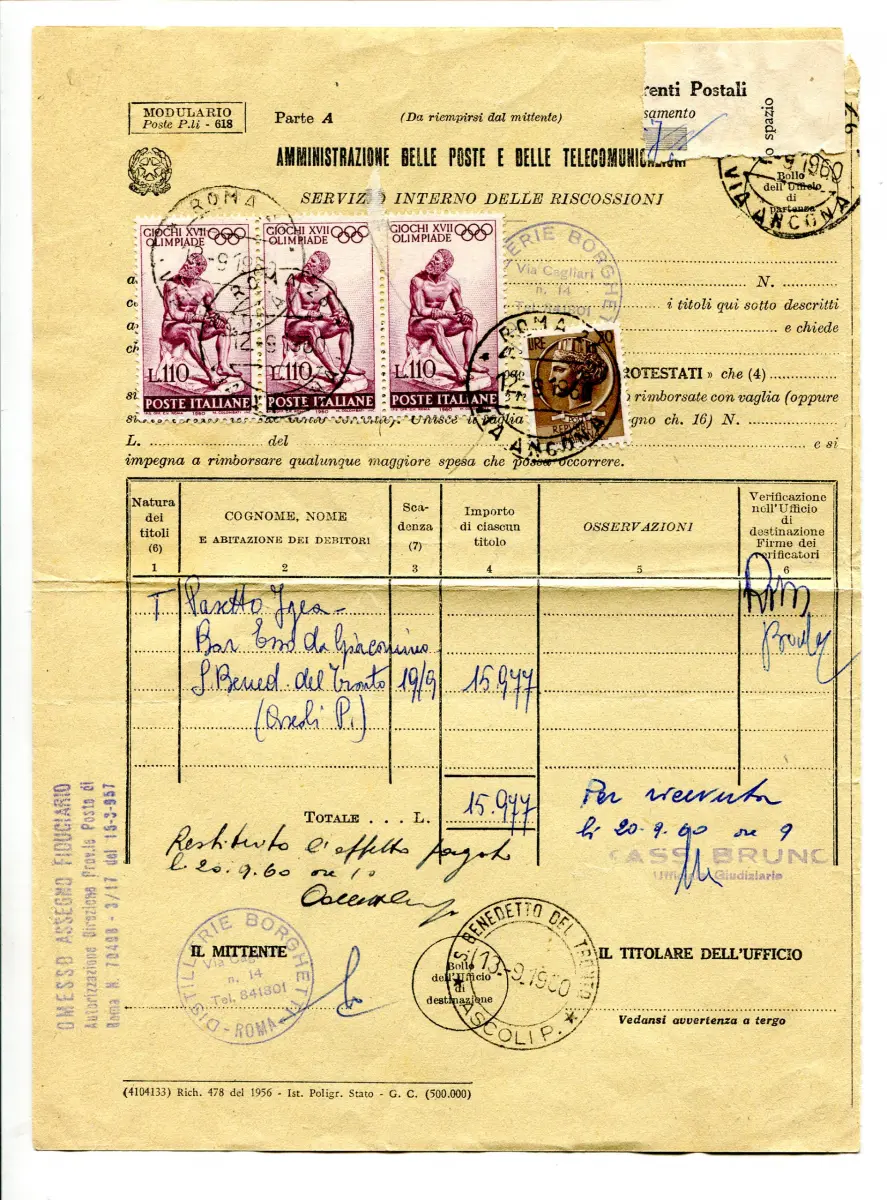 MODULARIO
Poste P.li - 618
Parte A
(Da riempirsi dal mittente)
renti Postali
samento
o spazio
AMMINISTRAZIONE DELLE POSTE E DELLE TELECOMUNICAZIONI
SERVIZIO INTERNO DELLE RISCOSSIONI
9 1960
Bollo
dell'Ufficio
di
partenza
VIA ANCONA
ROMA
GIOCHI XVII
OLIMPIADE
L.110
POSTE ITALIANE
GIOCHI XVII
OLIMPIADE
L.110
POSTE ITALIANE
GIOCHI XVII
OLIMPIADE
L.110
POSTE ITALIANE
ROMA
12-9 1960
ERIE BORGHE
Via Cagliari
n. 14
Tel. 841801
N.
i titoli qui sotto descritti
e chiede
ROMA
12-9 196
VIA ANCONA
ROTESTATI » che (4)
rimborsate con vaglia (oppure
Unisce il vaglia
gno ch. 16) N.
L. del e si
impegna a rimborsare qualunque maggiore spesa che possa occorrere.
Natura
dei
titoli
(6)
1
COGNOME, NOME
E ABITAZIONE DEI DEBITORI
2
Sca-
denza
(7)
3
Importo
di ciascun
titolo
4
OSSERVAZIONI
5
Verificazione
nell'Ufficio
di
destinazione
Firme dei
verificatori
6
T Pasetto Igea -
Bar Esso da Giacomino
S. Bened. del Tronto 19/9 15.977
(Ascoli P.)
TOTALE . . . L. 15.977
Per ricevuta
li 20-9-60 ore 9
CASSI BRUNO
Ufficiale Giudiziario
Restituito l'effetto pagato
li 20.9.60 ore 10
OMESSO ASSEGNO FIDUCIARIO
Autorizzazione Direzione Prov.le Poste di
Roma N. 70498 - 3/17 del 15-3-957
IL MITTENTE
DISTILLERIE BORGHETTI
Via Cagliari
n. 14
Tel. 841801
- ROMA -
Bollo
dell'Ufficio
di
destinazione
S. BENEDETTO DEL TRONTO
13-9.1960
* ASCOLI P. *
IL TITOLARE DELL'UFFICIO
Vedansi avvertenza a tergo
(4104133) Rich. 478 del 1956 - Ist. Poligr. Stato - G. C. (500.000)